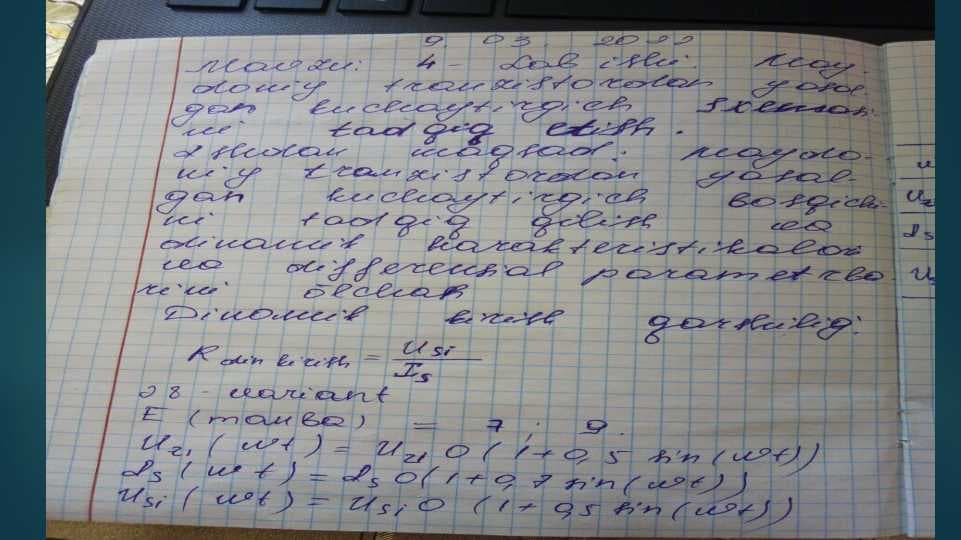 9. 03. 2022
Mavzu: 4- Lab ishi. May
doniy tranzistordan yasal
gan kuchaytirgich sxemasi
ni tadqiq etish.
Ishdan maqsad: Maydo-
niy tranzistordan yasal-
gan kuchaytirgich bosqichi
ni tadqiq qilish va
dinamik karakteristikalar
va differensial parametrla
rini o'lchash
Dinamik kirish qarshiligi:
R din kirish = Usi / Is
28 - variant
E (manba) = 7 ; 9.
Uzi (wt) = Uzi0 (1+0,5 sin(wt))
Is (wt) = Is0 (1+0,7 sin(wt))
Usi (wt) = Usi0 (1+0,5 sin(wt))
u
Uz
Is
U